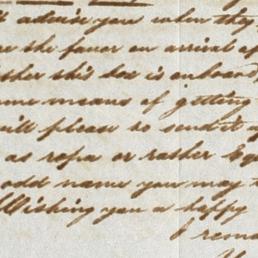 advise you when they
re the favor on arrival of
ther this box is onboard
me means of getting
ill please to send it
as ropa or rather
odd name you may
Wishing you a happy
I rema